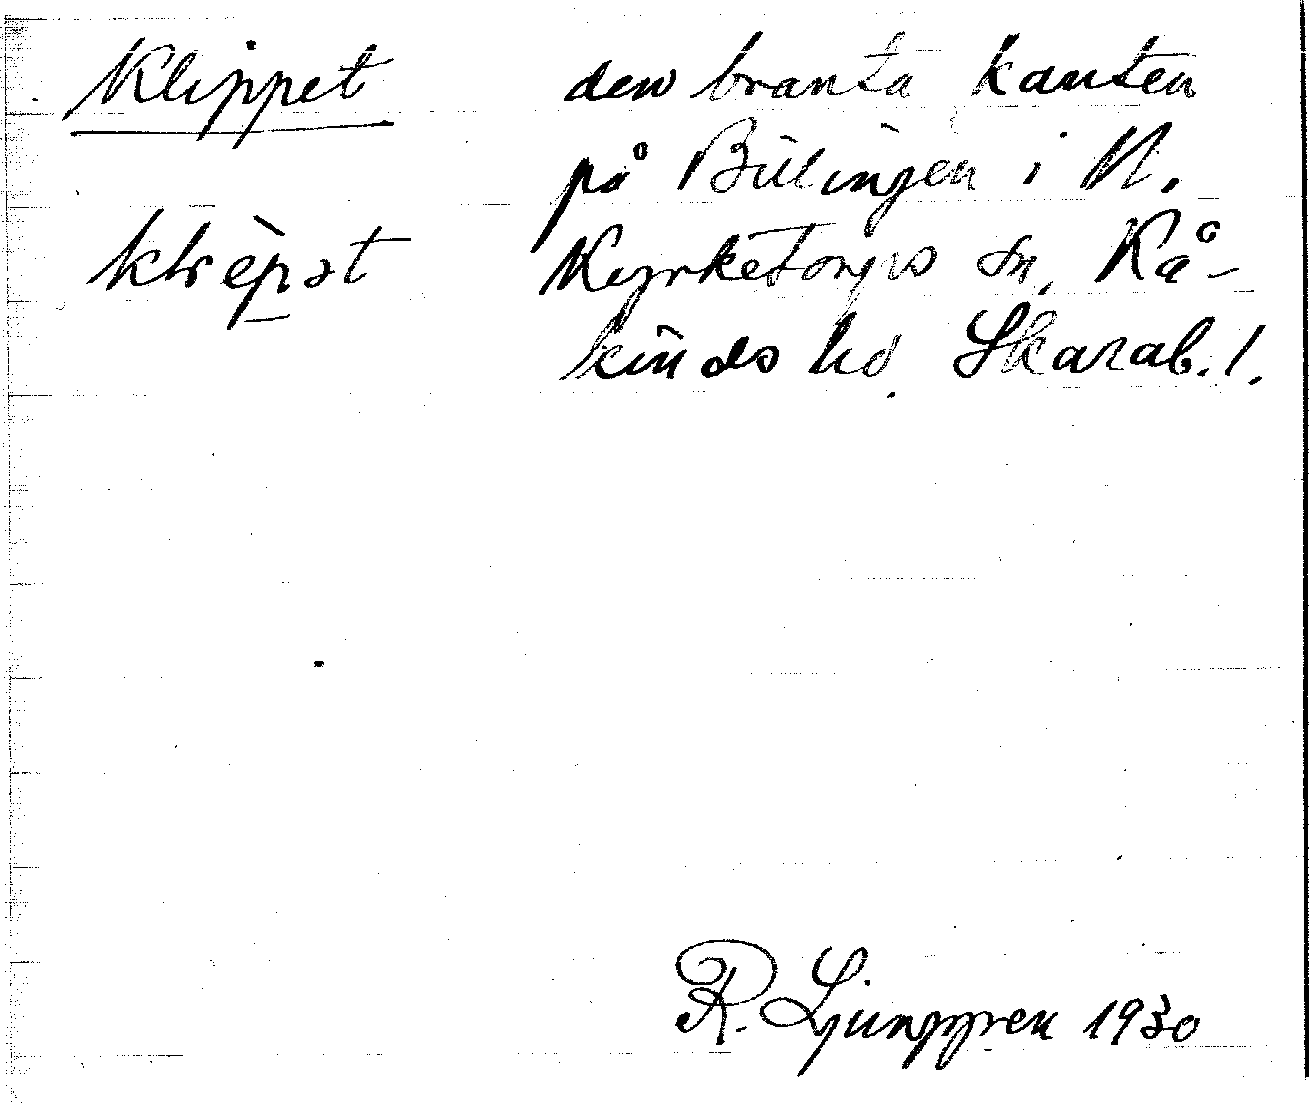 Klippet
klèpət
den branta kanten
på Billingen i N.
Kyrketorps sn, Kå-
kinds hd Skarab. l.
R. Ljunggren 1930